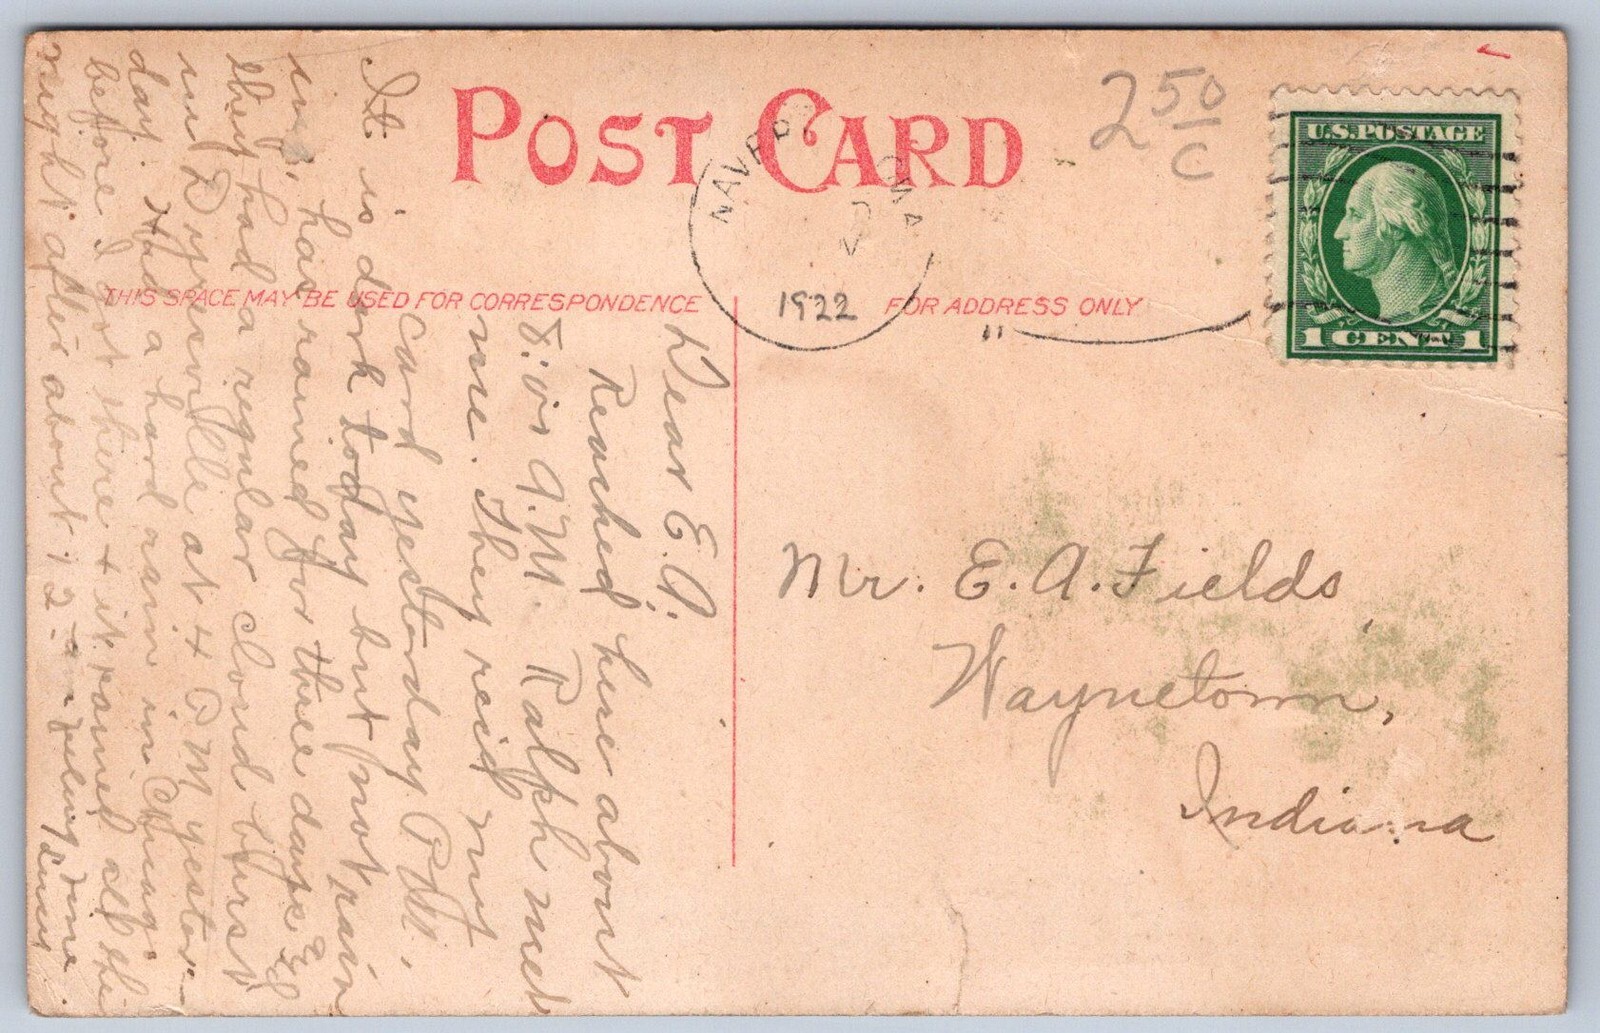 POST CARD
2 50
C
U.S. POSTAGE
1 CENT 1
1922
THIS SPACE MAY BE USED FOR CORRESPONDENCE
FOR ADDRESS ONLY
Mr. E. A. Fields
Waynetown,
Indiana
Dear E. A.
Reached here about
8:05 A.M. Ralph met
me. They rec'd my
card yesterday P.M.
It is dark today but not rain
ing, has rained for three days &
they had a regular cloud burst
in Dyersville at 4 P M yester-
day. Had a hard rain in Chicago
before I got there & it rained all the
night after about 12. am feeling fine